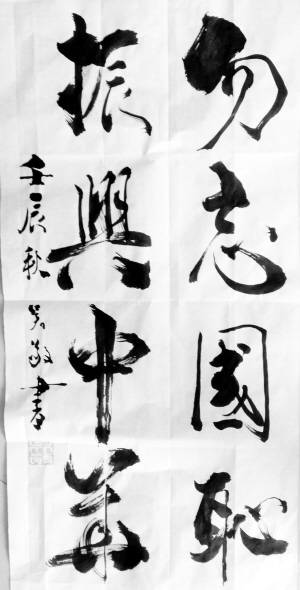 勿忘國恥
振興中華
壬辰秋 書